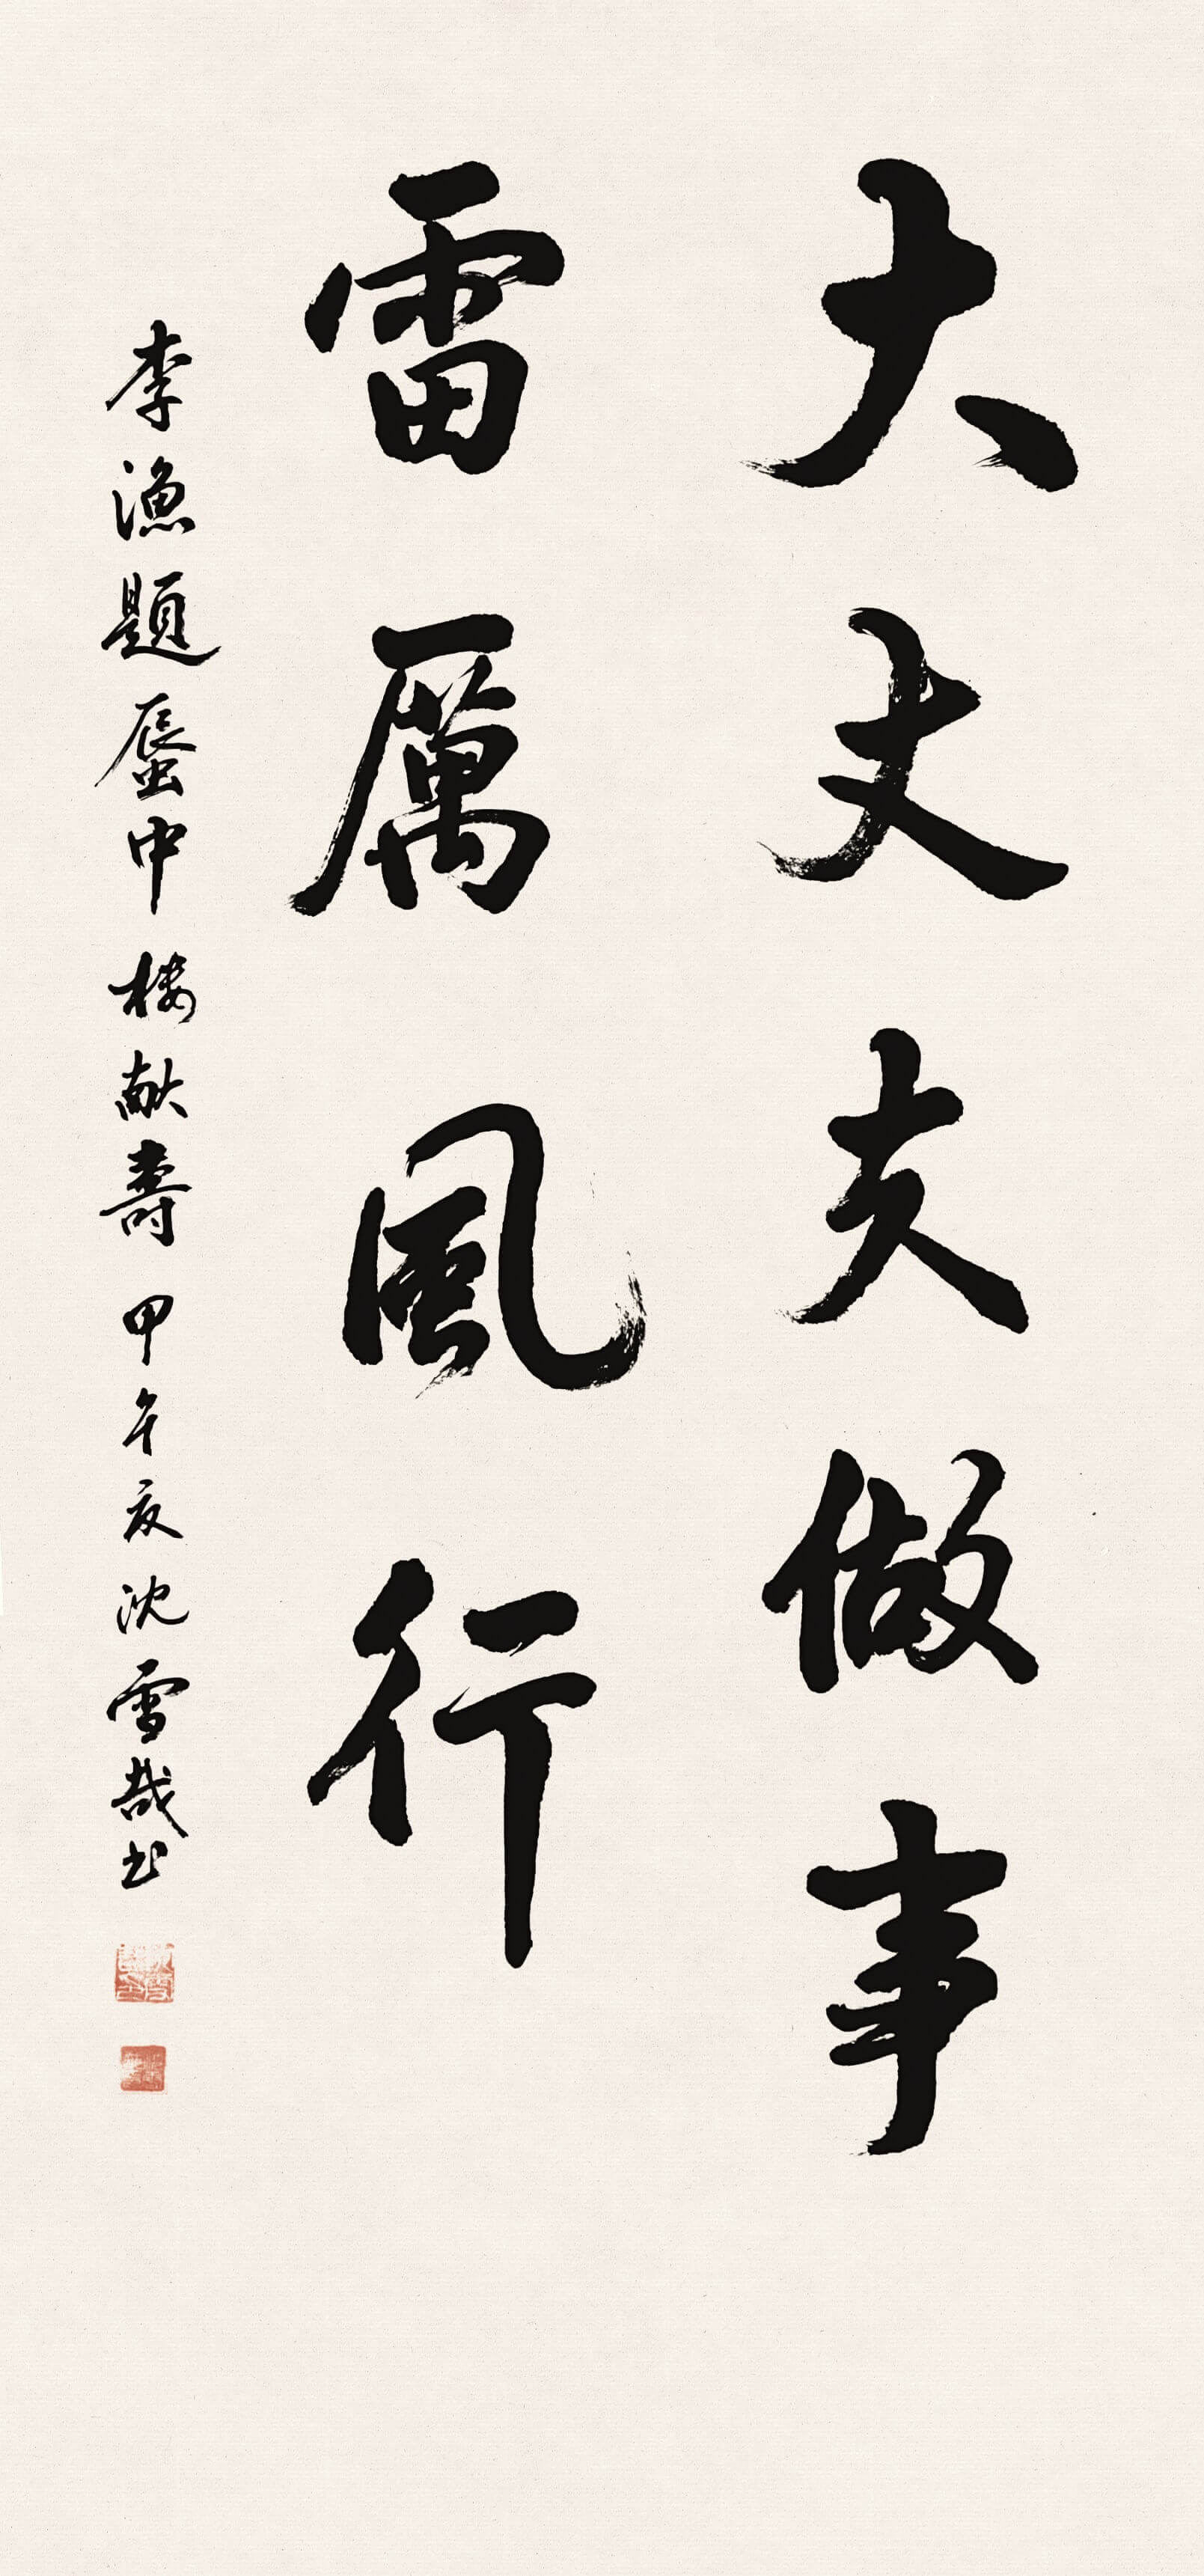 大丈夫做事
雷厲風行
李漁題蜃中楼献壽甲午夜沈雪哉书